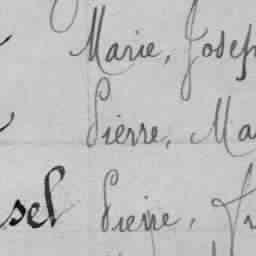 Marie, Josep
Pierre, Ma
sel Pierre, Fr